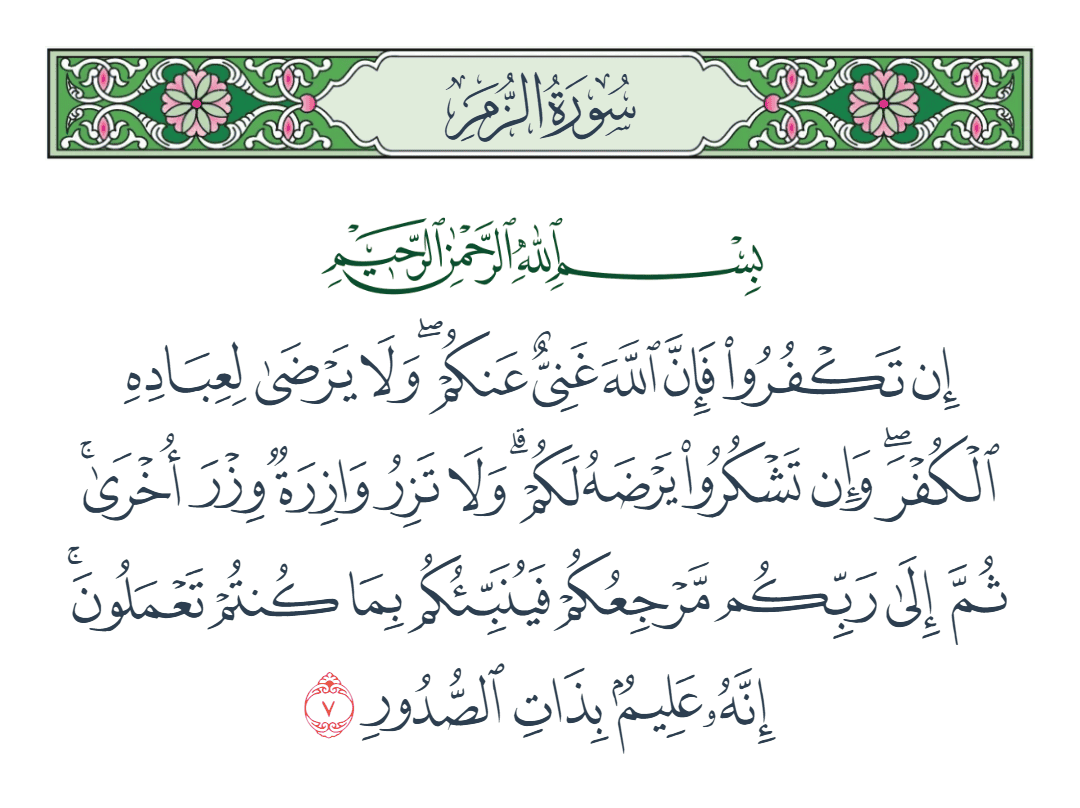 سُورَةُ الزُّمَرِ
بِسْمِ ٱللَّهِ ٱلرَّحْمَٰنِ ٱلرَّحِيمِ
إِن تَكْفُرُوا۟ فَإِنَّ ٱللَّهَ غَنِىٌّ عَنكُمْ ۖ وَلَا يَرْضَىٰ لِعِبَادِهِ
ٱلْكُفْرَ ۖ وَإِن تَشْكُرُوا۟ يَرْضَهُ لَكُمْ ۗ وَلَا تَزِرُ وَازِرَةٌ وِزْرَ أُخْرَىٰ ۚ
ثُمَّ إِلَىٰ رَبِّكُم مَّرْجِعُكُمْ فَيُنَبِّئُكُم بِمَا كُنتُمْ تَعْمَلُونَ ۚ
إِنَّهُۥ عَلِيمٌۢ بِذَاتِ ٱلصُّدُورِ ٧